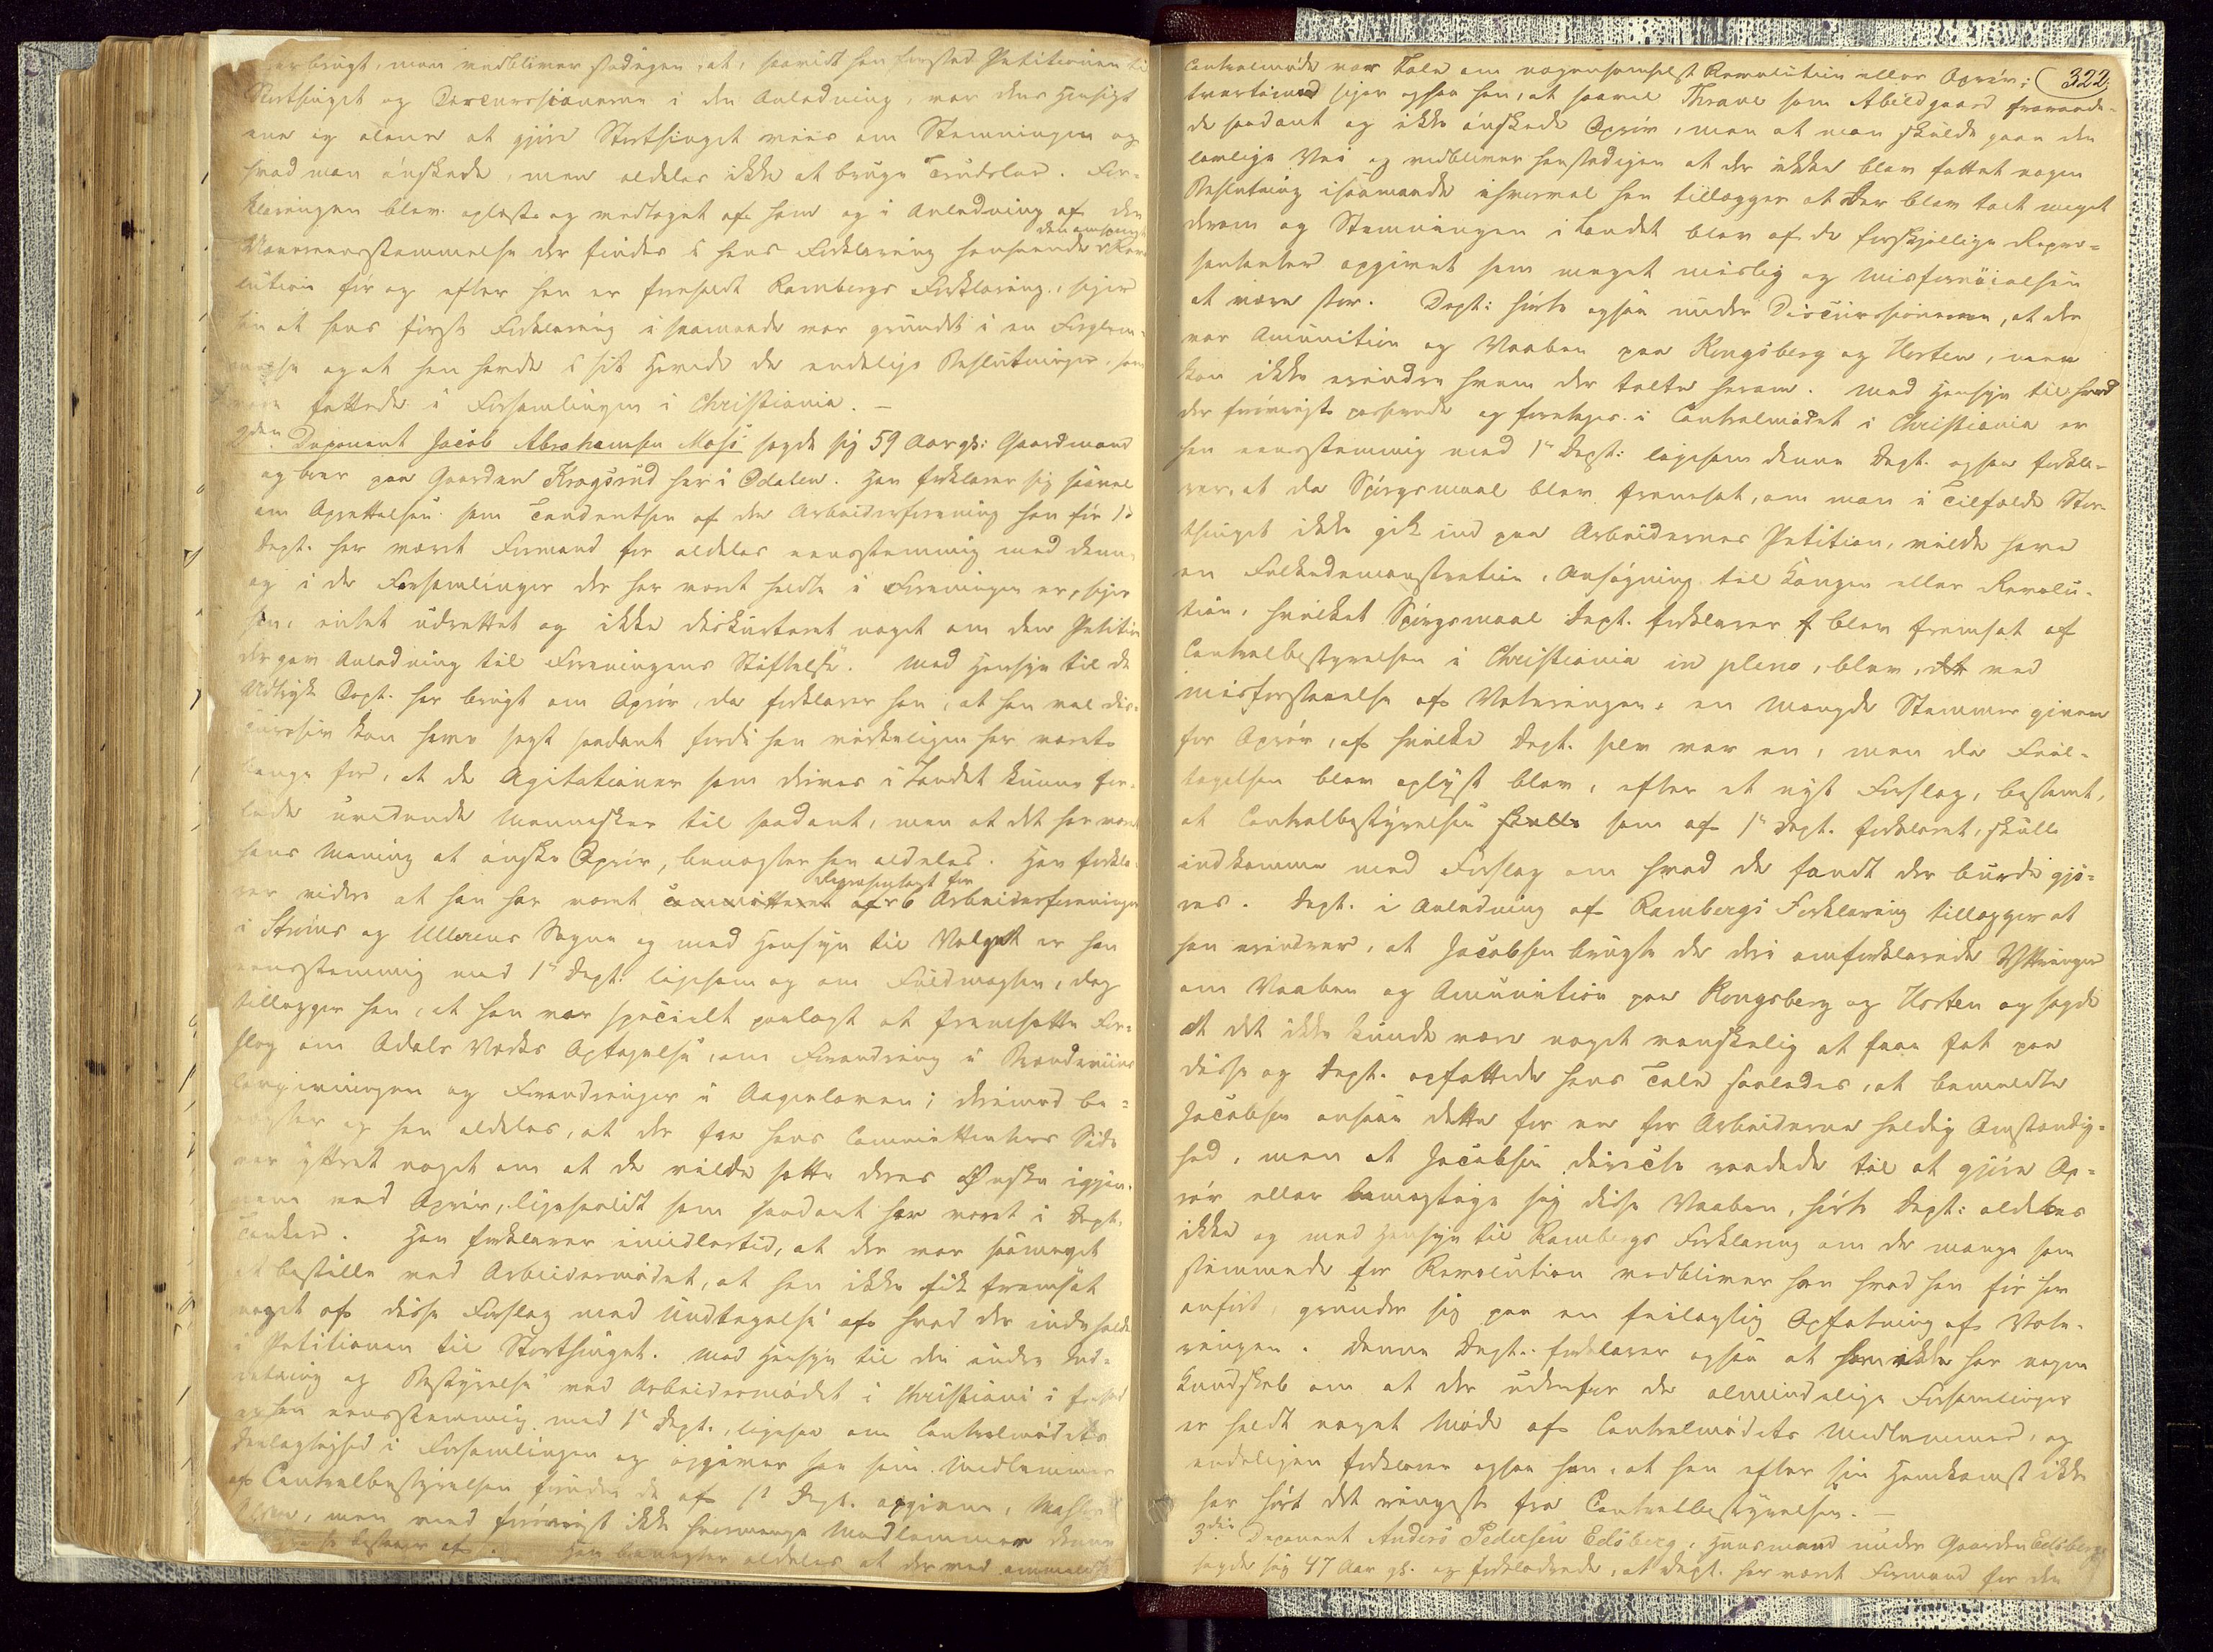 brugt, men vedbliver stadigen, at, saavidt han forstod Petitionen til
Storthinget og Discussionerne i den Anledning, var dens Hensigt
ene og alene at gjøre Storthinget viis om Stemningen og
hvad man ønskede, men aldeles ikke at bruge Trudsler. For-
klaringen blev oplæst og vedtaget af ham og i Anledning af den
Uovereensstemmelse der findes i hans Forklaring henseende den omspurgte Revo-
lution før og efter han er foreholdt Rambergs Forklaring, siger
han at hans første Forklaring i saamaade var grundet i en Forglem-
melse og at han havde i sit Hoved de endelige Beslutninger, som
fattede i Forsamlingen i Christiania. –
2den Deponent Jacob Abrahamsen Mosj sagde sig 59 Aar gl: Gaardmand
og boer paa Gaarden Kragsrud her i Odalen. Han forklarer sig saavel
om Oprettelsen som Tendentsen af den Arbeiderforening han før 1ste
Dept. har været Formand for aldeles eensstemmig med denne
og i de Forsamlinger der har været holdte i Foreningen er, siger
han, intet udrettet og ikke diskuteret noget om den Petition
der gav Anledning til Foreningens Stiftelse. Med Hensyn til de
Udtryk Dept. har brugt om Oprør, da forklarer han, at han vel dis-
cursiv kan have sagt saadant fordi han virkeligen har været
bange for, at de Agitationer som drives i Landet kunne for-
lede uvidende Mennesker til saadant, men at det har været
hans Mening at ønske Oprør, benægter han aldeles. Han forkla-
rer videre at han har været committeret af Representant for 6 Arbeiderforeninger
i Strøms og Ullerens Sogne og med Hensyn til Valget er han
eensstemmig med 1ste Dept. ligesom og om Fuldmagten, dog
tillægger han, at han var specielt paalagt at fremsætte For-
slag om Odals Værks Optagelse, om Forandring i Brændeviins
lovgivningen og Forandringer i Aagerloven; derimod be-
nægter og han aldeles, at der fra hans Committenters Side
var yttret noget om at de vilde sætte deres Ønske igjen-
nem ved Oprør, ligesaalidt som saadant har været i Dept.
Tanker. Han forklarer imidlertid, at der var saameget
at bestille ved Arbeidermødet, at han ikke fik fremsat
noget af disse Forslag med Undtagelse af hvad der indeholdes
i Petitionen til Storthinget. Med Hensyn til den indre Ind-
retning og Bestyrelse ved Arbeidermødet i Christiania i
er han eensstemmig med 1ste Dept., ligesaa om Centralmødets
Deelagtighed i Forsamlingen og opgiver han som Medlemmer
af Centralbestyrelsen foruden de af 1ste Dept. opgivne,
men veed forøvrigt ikke hvormange Medlemmer denne
bestaaer af. Han benægter aldeles at der ved anmeldte
322
Centralmøde var Tale om nogensomhelst Revolution eller Oprør;
tvertimod siger ogsaa han, at saavel Thrane som Abildgaard fraraade-
de saadant og ikke ønskede Oprør, men at man skulde gaae den
lovlige Vei og vedbliver han stadigen at der ikke blev fattet nogen
Beslutning i saamaade ihvorvel han tillægger at der blev talt meget
derom og Stemningen i Landet blev af de forskjellige Repre-
sentanter opgivet som meget mislig og Misfornøielsen
at være stor. Dept: hørte ogsaa under Discussionerne, at der
var Amunition og Vaaben paa Kongsberg og Horten, men
kan ikke erindre hvem der talte herom. Med Hensyn til hvad
der forøvrigt passerede og foretoges i Centralmødet i Christiania er
han eensstemmig med 1ste Dept: ligesom denne Dept. ogsaa forkla-
rer, at da Spørgsmaal blev fremsat, om man i Tilfælde Stor-
thinget ikke gik ind paa Arbeidernes Petition, vilde have
en Folkedemonstration, Ansøgning til Kongen eller Revolu-
tion, hvilket Spørgsmaal Dept. forklarer blev fremsat af
Centralbestyrelsen i Christiania in pleno, blev, ved
Misforstaaelse af Voteringen, en Mængde Stemmer given
for Oprør, af hvilke Dept. selv var en, men da Feil-
tagelsen blev oplyst blev, efter et nyt Forslag, bestemt,
at Centralbestyrelsen skulle som af 1ste Dept. forklaret, skulle
indkomme med Forslag om hvad de fandt der burde gjø-
res. Dept. i Anledning af Rambergs Forklaring tillægger at
han erindrer, at Jacobsen brugte de deri omforklarede Yttringer
om Vaaben og Amunition paa Kongsberg og Horten og sagde
at det ikke kunde være noget vanskelig at faae fat paa
disse og Dept. opfattede hans Tale saaledes, at bemeldte
Jacobsen ansaae dette for en for Arbeiderne heldig Omstændig-
hed, men at Jacobsen directe raadede til at gjøre Op-
rør eller bemægtige sig disse Vaaben, hørte Dept: aldeles
ikke og med Hensyn til Rambergs Forklaring om de mange som
stemmede for Revolution vedbliver han hvad han før har
anført, grunder sig paa en feilagtig Opfatning af Vote-
ringen. Denne Dept. forklarer ogsaa at han ikke har nogen
Kundskab om at der udenfor de almindelige Forsamlinger
er holdt noget Møde af Centralmødets Medlemmer, og
endeligen forklarer ogsaa han, at han efter sin Hjemkomst ikke
har hørt det ringeste fra Centralbestyrelsen. –
3die Deponent Anders Pedersen Edsberg, Huusmand under Gaarden Edsberg
sagde sig 47 Aar gl. og forklarede, at Dept. har været Formand for den